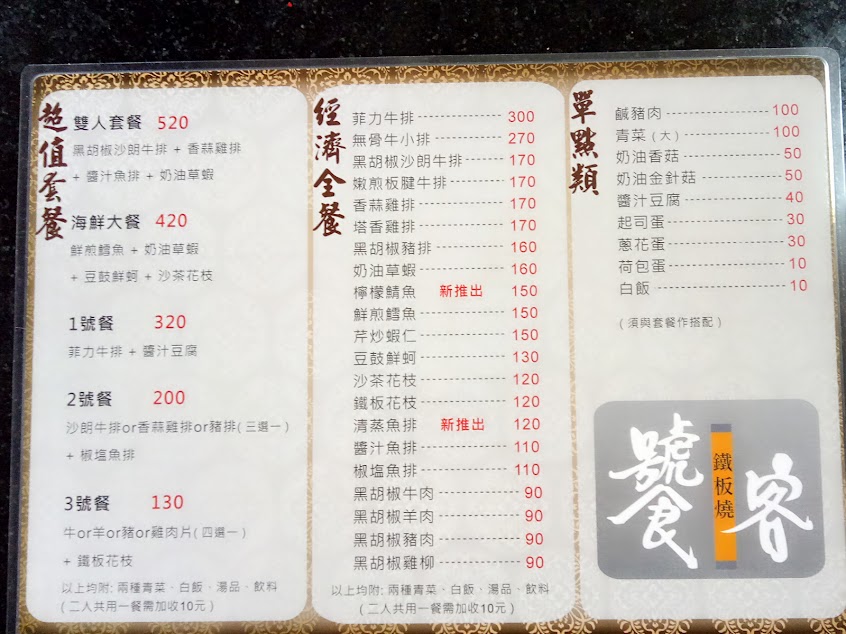 超值套餐
雙人套餐 520
黑胡椒沙朗牛排 + 香蒜雞排
+ 醬汁魚排 + 奶油草蝦
海鮮大餐 420
鮮煎鱈魚 + 奶油草蝦
+ 豆鼓鮮蚵 + 沙茶花枝
1號餐 320
菲力牛排 + 醬汁豆腐
2號餐 200
沙朗牛排or香蒜雞排or豬排(三選一)
+ 椒塩魚排
3號餐 130
牛or羊or豬or雞肉片(四選一)
+ 鐵板花枝
以上均附: 兩種青菜、白飯、湯品、飲料
(二人共用一餐需加收10元)
經濟全餐
菲力牛排 300
無骨牛小排 270
黑胡椒沙朗牛排 170
嫩煎板腱牛排 170
香蒜雞排 170
塔香雞排 170
黑胡椒豬排 160
奶油草蝦 160
檸檬鯖魚 新推出 150
鮮煎鱈魚 150
芹炒蝦仁 150
豆鼓鮮蚵 130
沙茶花枝 120
鐵板花枝 120
清蒸魚排 新推出 120
醬汁魚排 110
椒塩魚排 110
黑胡椒牛肉 90
黑胡椒羊肉 90
黑胡椒豬肉 90
黑胡椒雞柳 90
以上均附: 兩種青菜、白飯、湯品、飲料
(二人共用一餐需加收10元)
單點類
鹹豬肉 100
青菜(大) 100
奶油香菇 50
奶油金針菇 50
醬汁豆腐 40
起司蛋 30
蔥花蛋 30
荷包蛋 10
白飯 10
(須與套餐作搭配)
饕客
鐵板燒